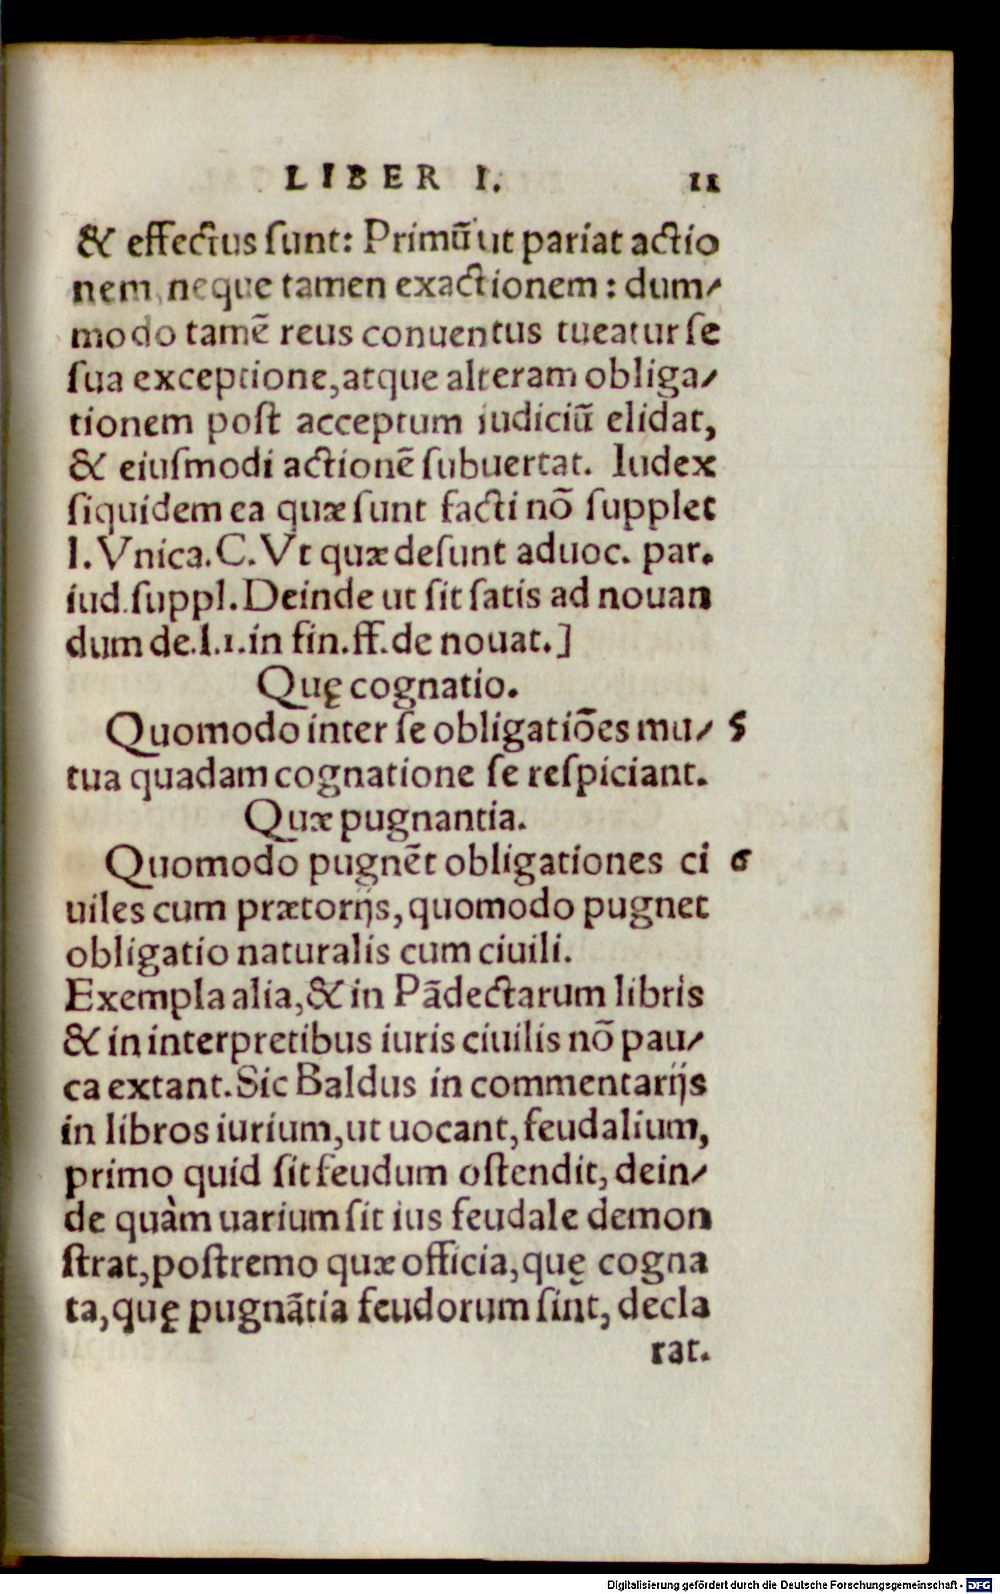 LIBER I. 11
& effectus ſunt: Primũ ut pariat actio
nem, neque tamen exactionem: dum-
modo tamẽ reus conuentus tueatur ſe
ſua exceptione, atque alteram obliga-
tionem poſt acceptum iudiciũ elidat,
& eiuſmodi actionẽ ſubuertat. Iudex
ſiquidem ea quæ ſunt facti nõ ſupplet
l. Vnica. C. Vt quæ deſunt aduoc. par.
iud. ſuppl. Deinde ut ſit ſatis ad nouan
dum de. l. 1. in fin. ff. de nouat.]
Quę cognatio.
Quomodo inter ſe obligatiões mu- 5
tua quadam cognatione ſe reſpiciant.
Quæ pugnantia.
Quomodo pugnẽt obligationes ci 6
uiles cum prætorijs, quomodo pugnet
obligatio naturalis cum ciuili.
Exempla alia, & in Pãdectarum libris
& in interpretibus iuris ciuilis nõ pau-
ca extant. Sic Baldus in commentarijs
in libros iurium, ut uocant, feudalium,
primo quid ſit feudum oſtendit, dein-
de quàm uarium ſit ius feudale demon
ſtrat, poſtremo quæ officia, quę cogna
ta, quę pugnãtia feudorum ſint, decla
rat.
Digitalisierung gefördert durch die Deutsche Forschungsgemeinschaft - DFG